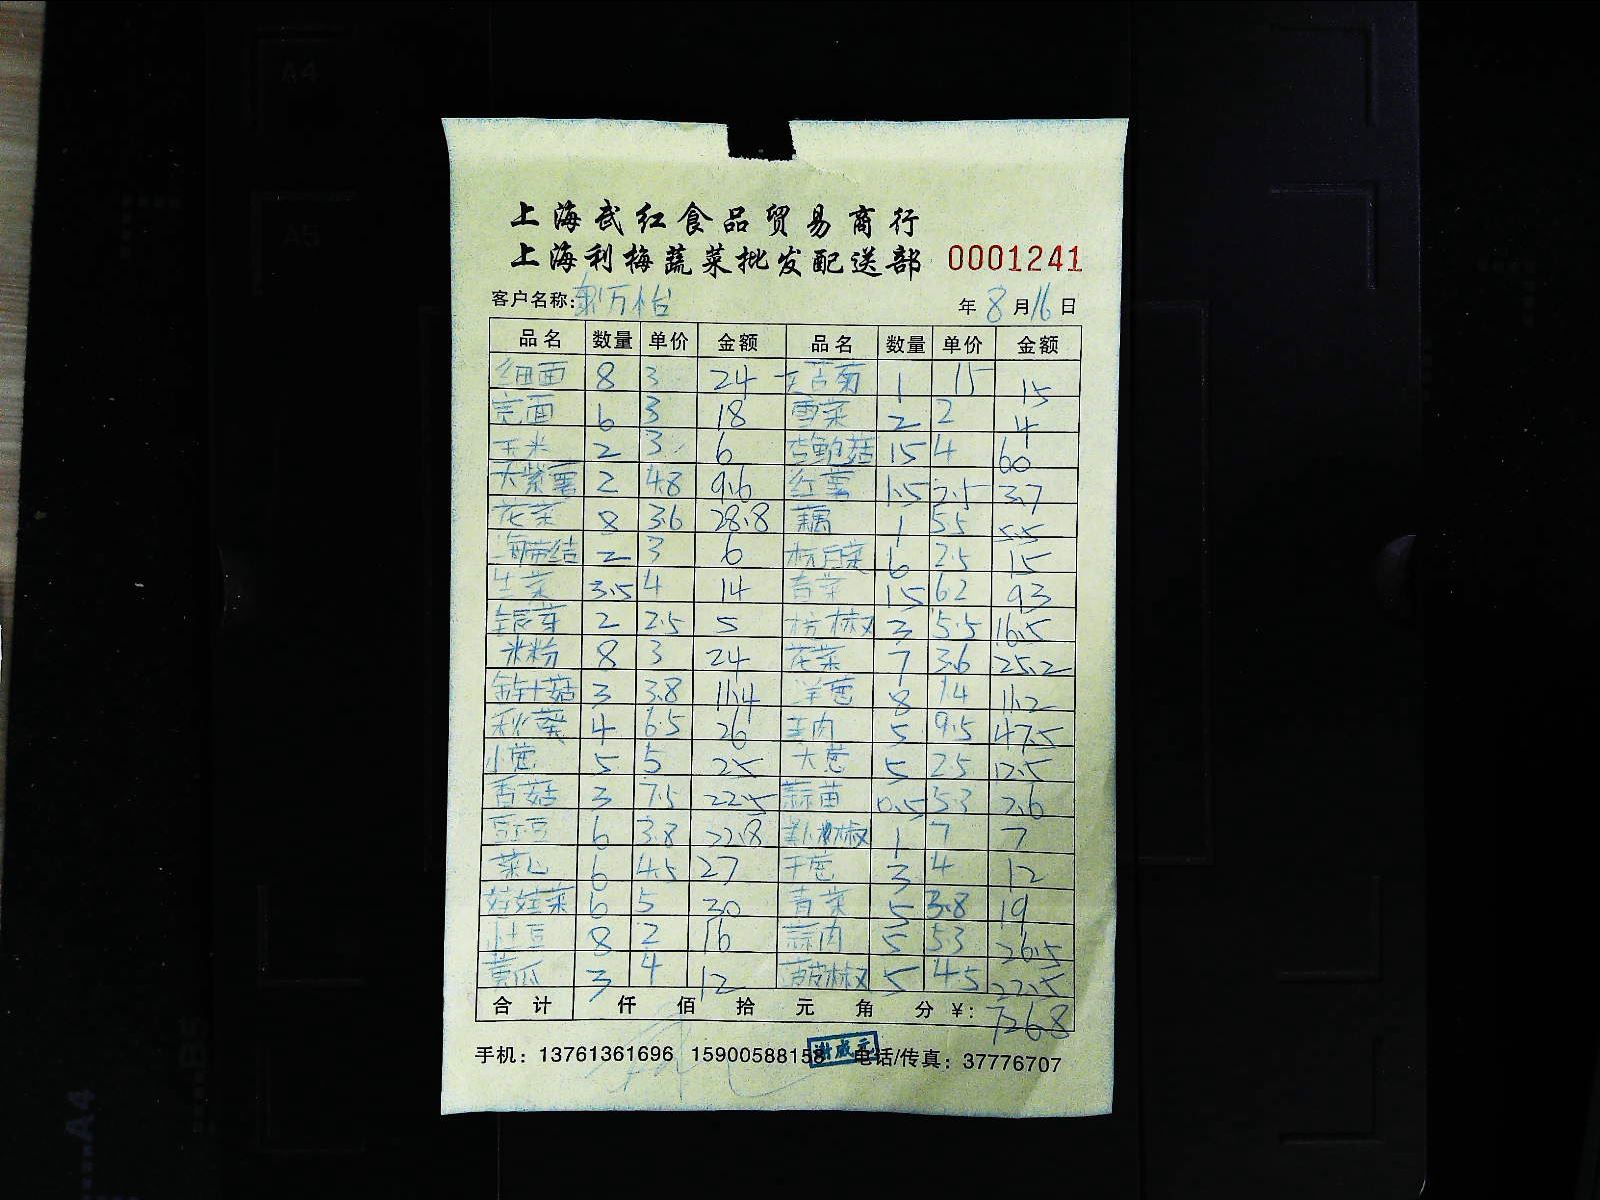 上海武红食品贸易商行
上海利梅蔬菜批发配送部 0001241
客户名称: 万怡 年 8 月 16 日
品名 数量 单价 金额 品名 数量 单价 金额
细面 8 3 24 苦菊 1 15 15
宽面 6 3 18 雪菜 2 2 4
玉米 2 3 6 杏鲍菇 15 4 60
大紫薯 2 4.8 9.6 红薯 1.5 2.5 3.7
花菜 8 3.6 28.8 藕 1 5.5 5.5
海带结 2 3 6 6 2.5 15
生菜 3.5 4 14 香菜 15 6.2 93
银芽 2 2.5 5 杭椒 3 5.5 16.5
米粉 8 3 24 花菜 7 3.6 25.2
金针菇 3 3.8 11.4 洋葱 8 1.4 11.2
秋葵 4 6.5 26 羊肉 5 9.5 47.5
小葱 5 5 25 大葱 5 2.5 12.5
香菇 3 7.5 22.5 蒜苗 0.5 5.3 2.6
6 3.8 22.8 美人椒 1 7 7
菜心 6 4.5 27 干葱 3 4 12
娃娃菜 6 5 30 青菜 5 3.8 19
土豆 8 2 16 蒜肉 5 5.3 26.5
黄瓜 3 4 12 薄皮椒 5 4.5 22.5
合计 仟 佰 拾 元 角 分 ¥: 726.8
手机: 13761361696 15900588158 谢威元 电话/传真: 37776707